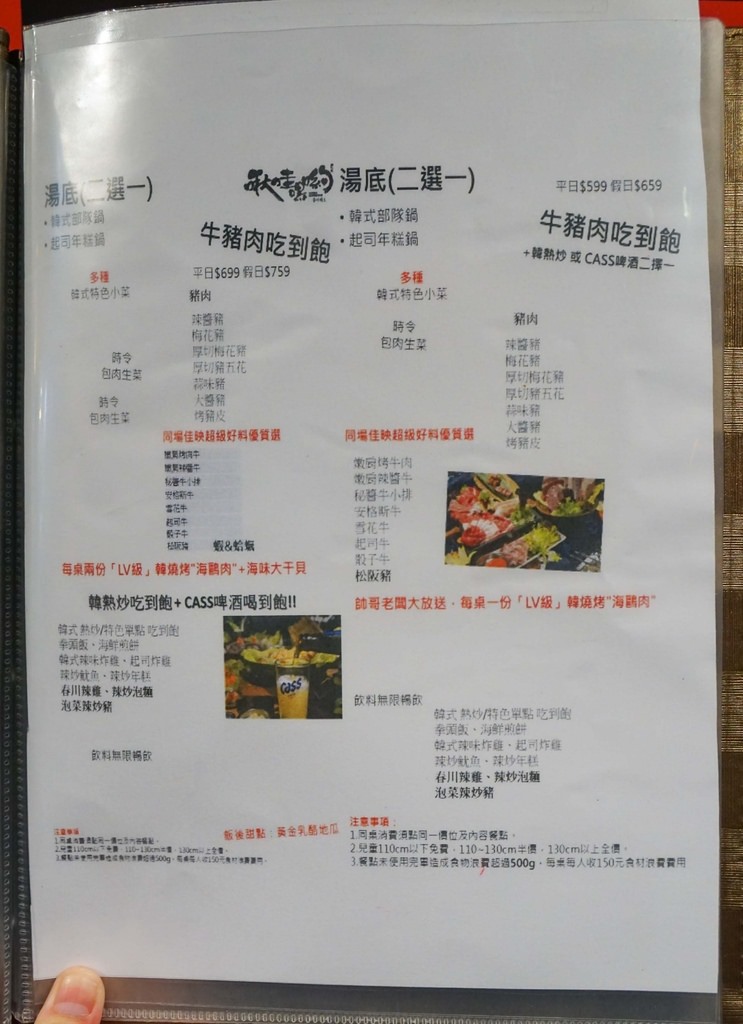 湯底(二選一)
• 韓式部隊鍋
• 起司年糕鍋
牛豬肉吃到飽
平日$699 假日$759
多種
韓式特色小菜
豬肉
辣醬豬
梅花豬
厚切梅花豬
厚切豬五花
蒜味豬
大醬豬
烤豬皮
時令
包肉生菜
時令
包肉生菜
同場佳映超級好料優質選
嫩肩烤肉牛
嫩肩辣醬牛
秘醬牛小排
安格斯牛
雪花牛
起司牛
骰子牛
松阪豬
蝦&蛤蠣
每桌兩份「LV級」韓燒烤"海鷗肉"+海味大干貝
韓熱炒吃到飽+ CASS啤酒喝到飽!!
韓式 熱炒/特色單點 吃到飽
拳頭飯、海鮮煎餅
韓式辣味炸雞、起司炸雞
辣炒魷魚、辣炒年糕
春川辣雞、辣炒泡麵
泡菜辣炒豬
CASS
飲料無限暢飲
飯後甜點：黃金乳酪地瓜
注意事項
1.同桌消費須點同一價位及內容餐點。
2.兒童110cm以下免費，110~130cm半價，130cm以上全價。
3.餐點未使用完畢造成食物浪費超過500g，每桌每人收150元食材浪費費用。
湯底(二選一)
• 韓式部隊鍋
• 起司年糕鍋
平日$599 假日$659
牛豬肉吃到飽
+韓熱炒 或 CASS啤酒二擇一
多種
韓式特色小菜
時令
包肉生菜
豬肉
辣醬豬
梅花豬
厚切梅花豬
厚切豬五花
蒜味豬
大醬豬
烤豬皮
同場佳映超級好料優質選
嫩肩烤牛肉
嫩肩辣醬牛
秘醬牛小排
安格斯牛
雪花牛
起司牛
骰子牛
松阪豬
帥哥老闆大放送，每桌一份「LV級」韓燒烤"海鷗肉"
飲料無限暢飲
韓式 熱炒/特色單點 吃到飽
拳頭飯、海鮮煎餅
韓式辣味炸雞、起司炸雞
辣炒魷魚、辣炒年糕
春川辣雞、辣炒泡麵
泡菜辣炒豬
注意事項：
1.同桌消費須點同一價位及內容餐點。
2.兒童110cm以下免費，110~130cm半價，130cm以上全價。
3.餐點未使用完畢造成食物浪費超過500g，每桌每人收150元食材浪費費用